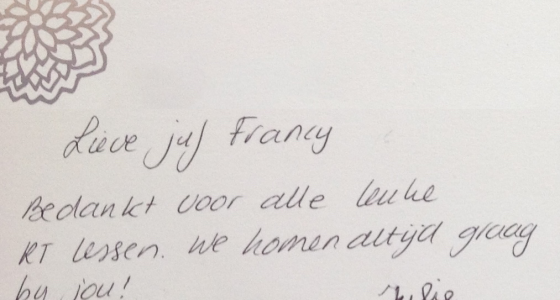 Lieve juf Francy
Bedankt voor alle leuke
RT lessen. We komen altijd graag
by jou!